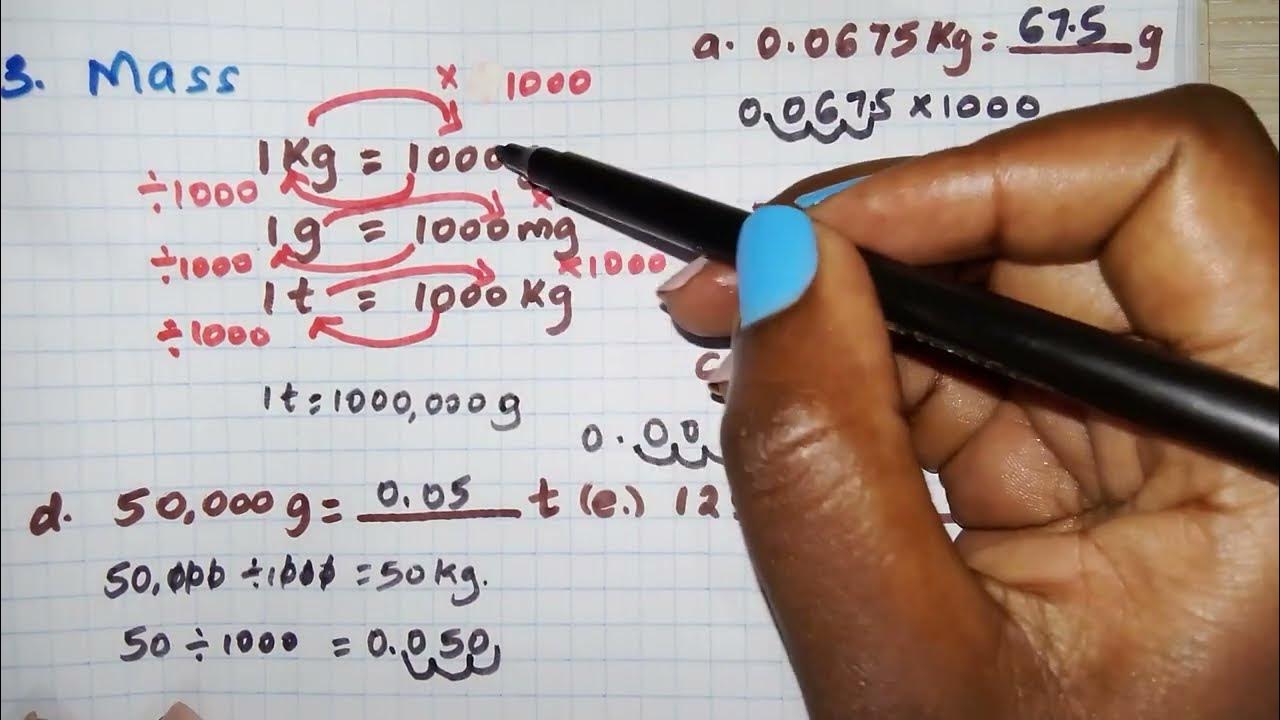 3. Mass
× 1000
1Kg = 1000
÷1000
×
1g = 1000mg
÷1000
×1000
1t = 1000Kg
÷1000
1t=1000,000g
a. 0.0675Kg= 67.5 g
0.0675×1000
0.00
d. 50,000g= 0.05 t
50,000 ÷1000 =50kg.
50÷1000 = 0.050
(e.) 12